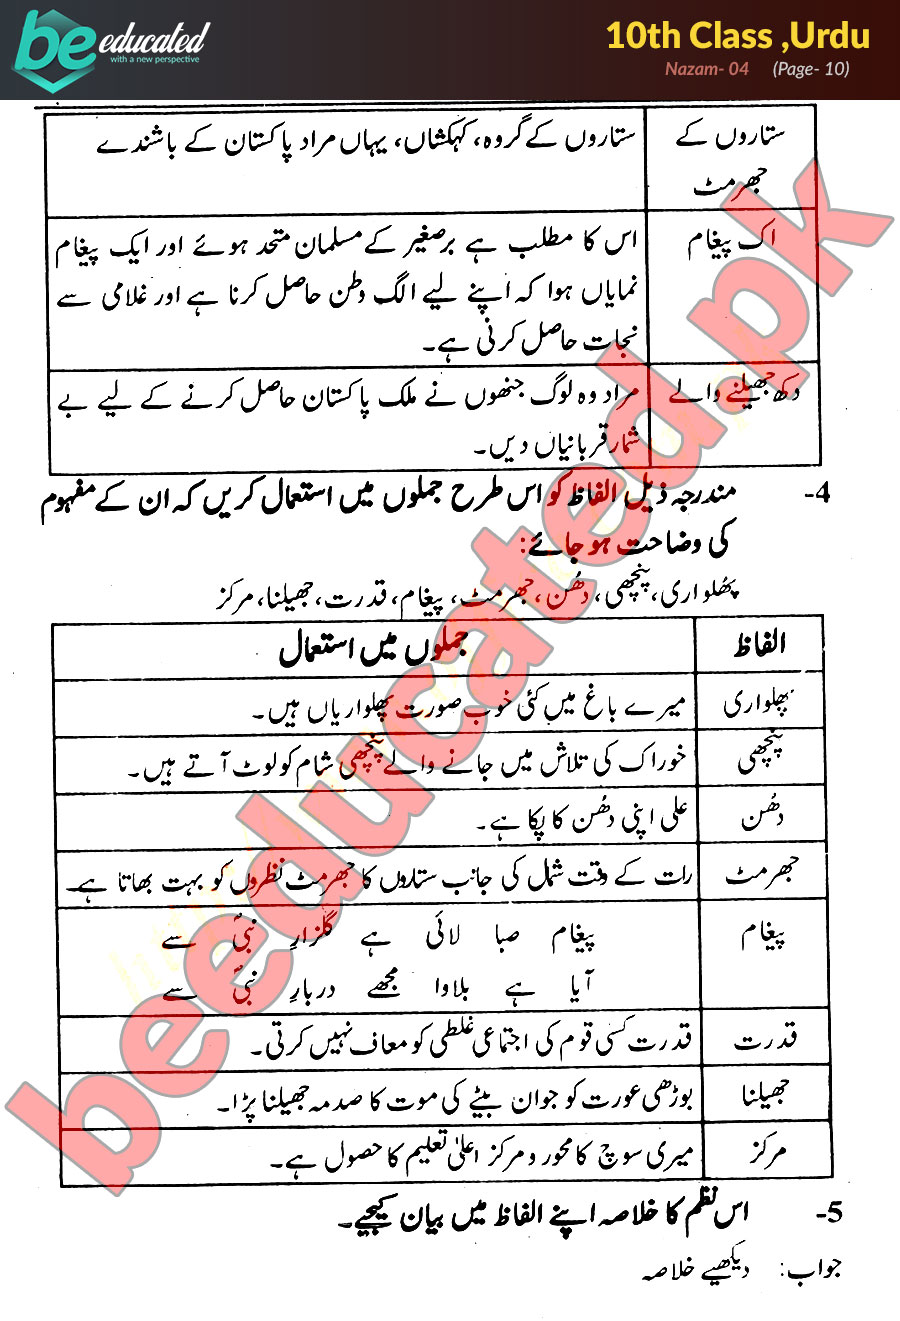 be educated
with a new perspective
10th Class ,Urdu
Nazam- 04 (Page- 10)
ستاروں کے ستاروں کے گروہ، کہکشاں، یہاں مراد پاکستان کے باشندے
جھرمٹ
اک پیغام اس کا مطلب ہے برصغیر کے مسلمان متحد ہوئے اور ایک پیغام
نمایاں ہوا کہ اپنے لیے الگ وطن حاصل کرنا ہے اور غلامی سے
نجات حاصل کرنی ہے۔
دکھ جھیلنے والے مراد وہ لوگ جنھوں نے ملک پاکستان حاصل کرنے کے لیے بے
شمار قربانیاں دیں۔
4- مندرجہ ذیل الفاظ کو اس طرح جملوں میں استعمال کریں کہ ان کے مفہوم
کی وضاحت ہو جائے:
پھُلواری، پنچھی، دھُن، جھرمٹ، پیغام، قدرت، جھیلنا، مرکز
الفاظ جملوں میں استعمال
پھلواری میرے باغ میں کئی خوب صورت پھلواریاں ہیں۔
پنچھی خوراک کی تلاش میں جانے والے پنچھی شام کو لوٹ آتے ہیں۔
دھُن علی اپنی دھُن کا پکا ہے۔
جھرمٹ رات کے وقت شمل کی جانب ستاروں کا جھرمٹ نظروں کو بہت بھاتا ہے۔
پیغام پیغام صبا لائی ہے گلزارِ نبیؐ سے
آیا ہے بلاوا مجھے دربارِ نبیؐ سے
قدرت قدرت کسی قوم کی اجتماعی غلطی کو معاف نہیں کرتی۔
جھیلنا بوڑھی عورت کو جوان بیٹے کی موت کا صدمہ جھیلنا پڑا۔
مرکز میری سوچ کا محور و مرکز اعلیٰ تعلیم کا حصول ہے۔
5- اس نظم کا خلاصہ اپنے الفاظ میں بیان کیجیے۔
جواب: دیکھیے خلاصہ
beeducated.pk